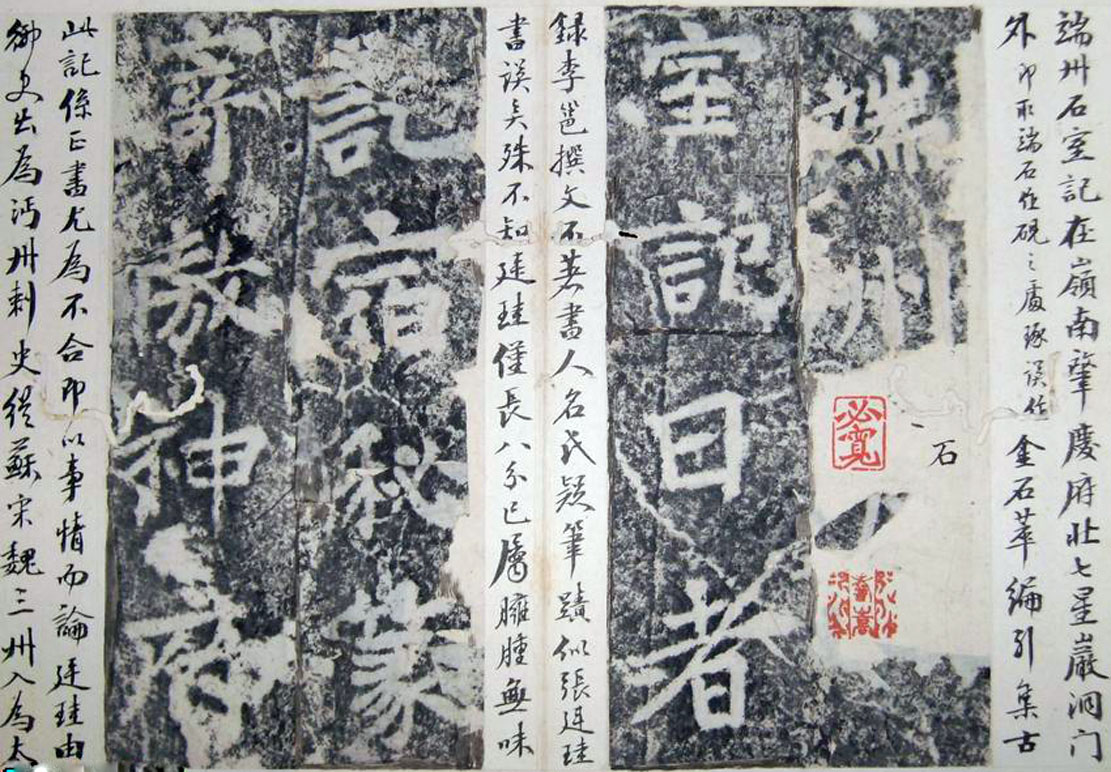 端州石室記在嶺南肇慶府北七星巖洞门
外即取端石作硯之處琢誤作金石萃編引集古
端州
石
室記目者
錄李邕撰文不著書人名氏疑筆蹟似張廷珪
書誤矣殊不知廷珪僅長八分已屬臃腫無味
記宿秘篆
神
此記係正書尤為不合即以事情而論廷珪由
御史出為沔州刺史從蘇宋魏三州入為太